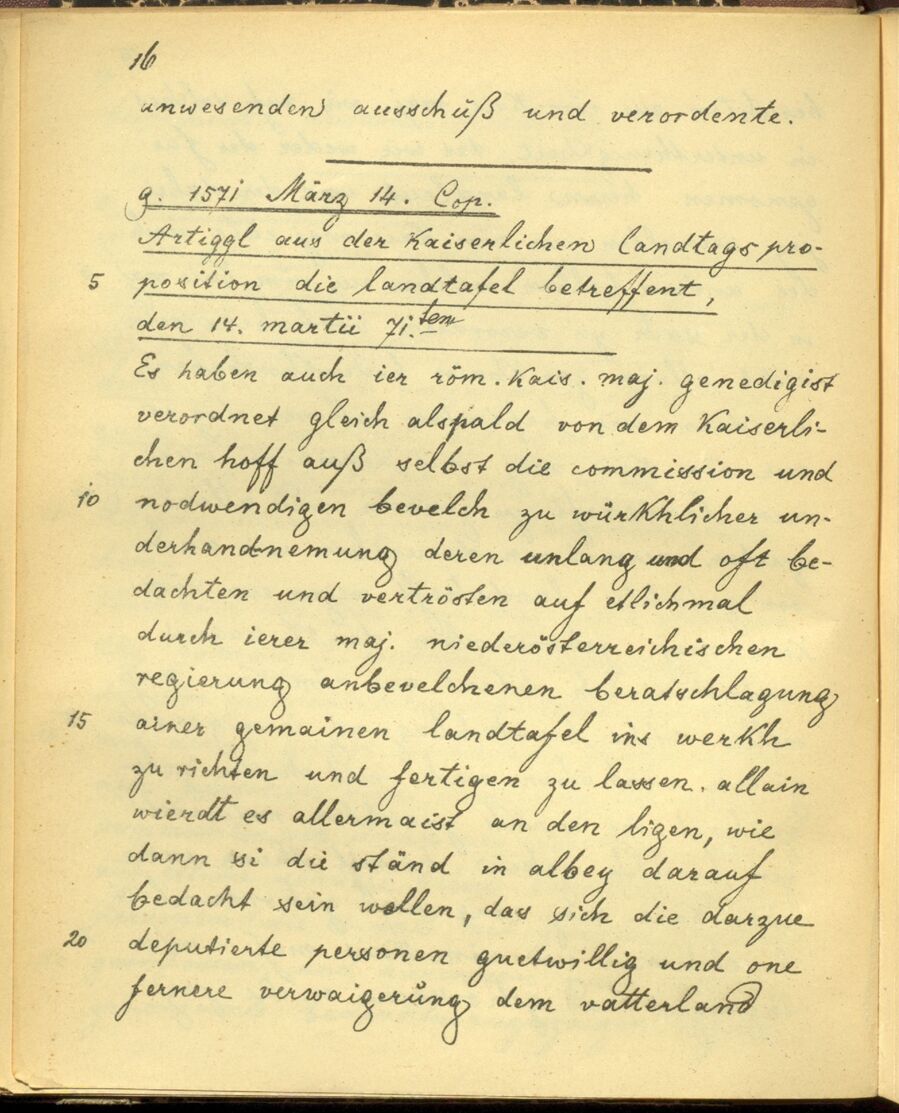 16
anwesenden ausschuß und verordente.
g. 1571 März 14. Cop.
Artiggl aus der kaiserlichen landtags pro-
5 position die landtafel betreffent,
den 14. martii 71.ten
Es haben auch ier röm. kais. maj. genedigist
verordnet gleich alspald von dem kaiserli-
chen hoff auß selbst die commission und
10 nodwendigen bevelch zu würkhlicher un-
derhandnemung deren unlang und oft be-
dachten und vertrösten auf etlichmal
durch ierer maj. niederösterreichischen
regierung anbevelchenen beratschlagung
15 ainer gemainen landtafel ins werkh
zu richten und fertigen zu lassen. allain
wierdt es allermaist an den ligen, wie
dann si die ständ in albey darauf
bedacht sein wellen, das sich die darzue
20 deputierte personen guetwillig und one
fernere verwaigerŭng dem vatterland